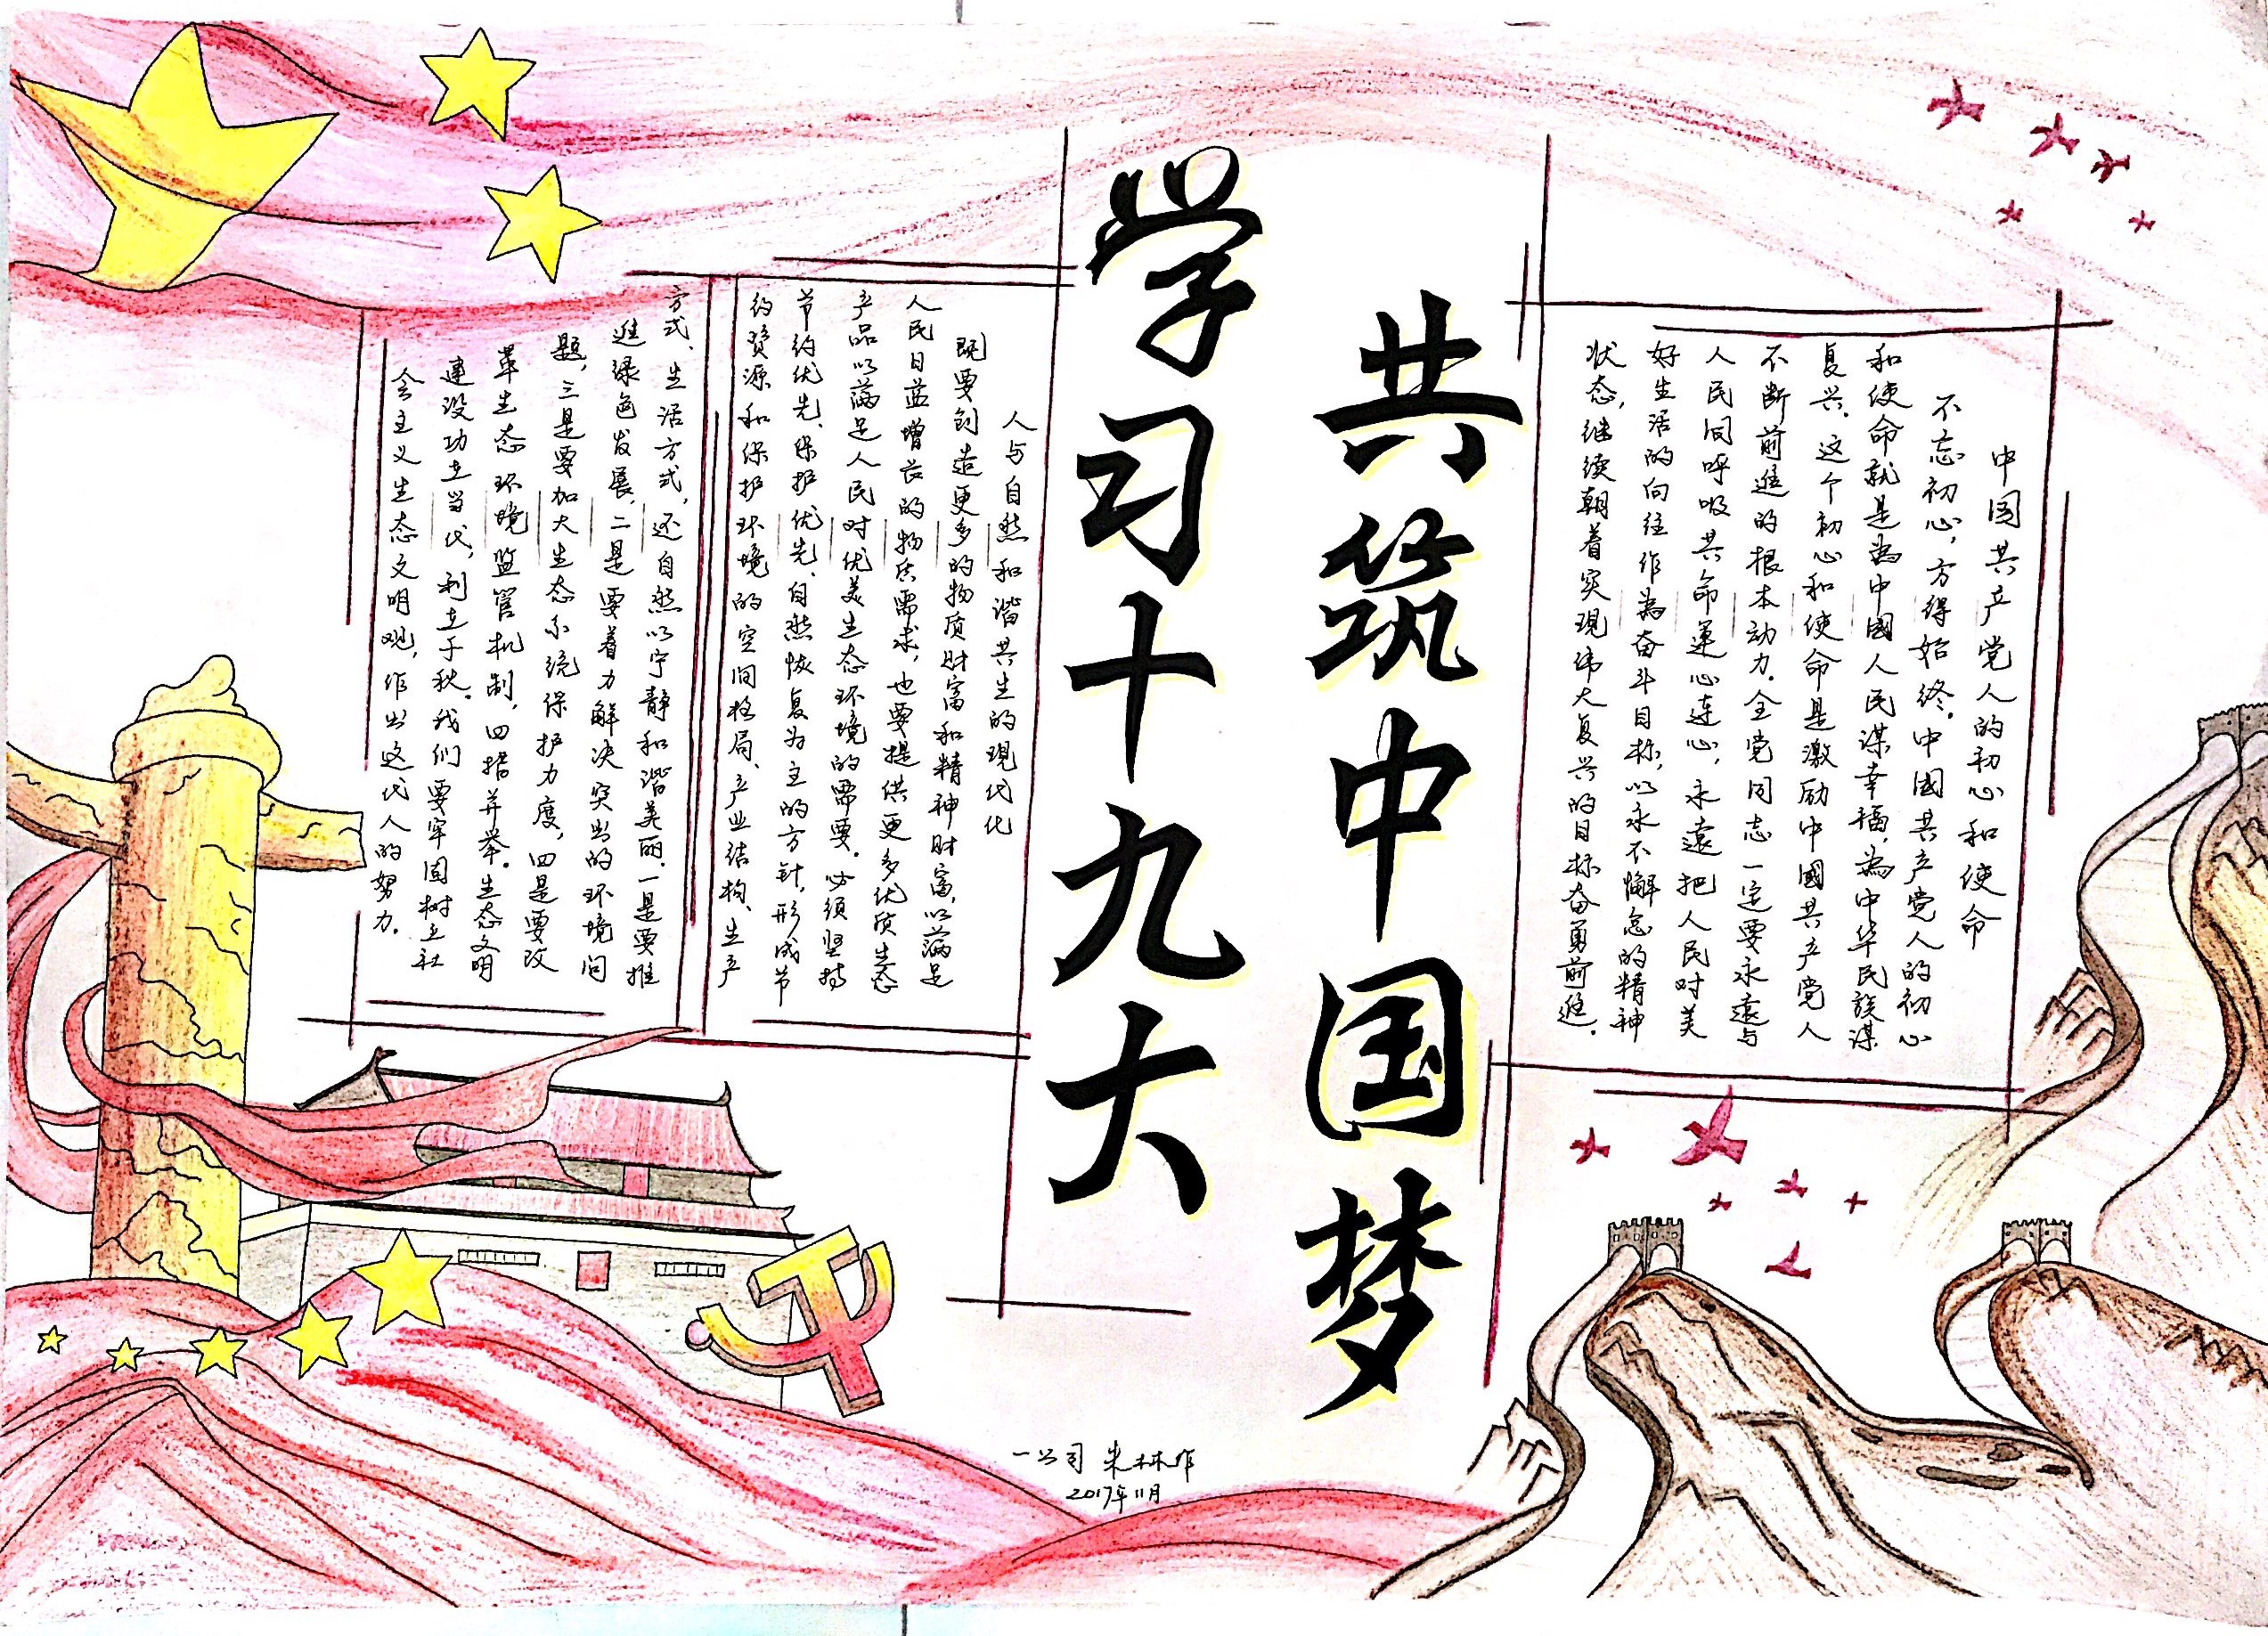 学习十九大
共筑中国梦
中国共产党人的初心和使命
不忘初心，方得始终。中國共产党人的初心
和使命就是為中國人民谋幸福，為中华民族谋
复兴。这个初心和使命是激励中國共产党人
不断前進的根本动力。全党同志一定要永遠与
人民同呼吸共命運心连心，永遠把人民对美
好生活的向往作為奋斗目标，以永不懈怠的精神
状态，继续朝着实現伟大复兴的目标奋勇前進。
人与自然和谐共生的現代化
既要创造更多的物质财富和精神财富，以满足
人民日益增长的物质需求，也要提供更多优质生态
产品以满足人民对优美生态环境的需要。必须坚持
节约优先、保护优先、自然恢复为主的方针，形成节
约资源和保护环境的空间格局、产业结构、生产
方式、生活方式，还自然以宁静和谐美丽。一是要推
進绿色发展，二是要着力解决突出的环境问
题，三是要加大生态系统保护力度，四是要改
革生态环境监管机制，四措并举。生态文明
建设功在当代，利在千秋。我们要牢固树立社
会主义生态文明观，作出这代人的努力。
一公司 朱林作
2017年11月